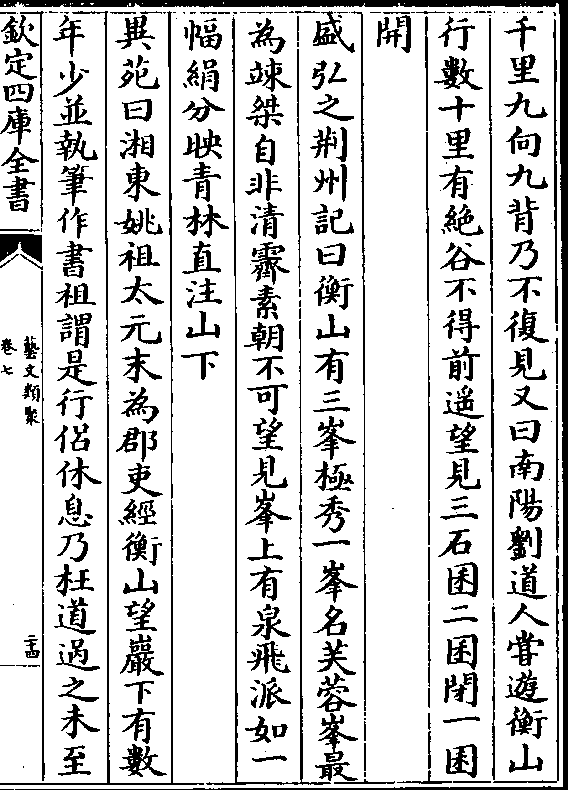 千里九向九背乃不復見又曰南陽劉道人嘗遊衡山
行數十里有絶谷不得前遥望見三石囷二囷閉一囷
開
盛弘之荆州記曰衡山有三峯極秀一峯名芙蓉峯最
為竦桀自非清霽素朝不可望見峯上有泉飛派如一
幅絹分映青林直注山下
異苑曰湘東姚祖太元末為郡吏經衡山望巖下有數
年少並執筆作書祖謂是行侣休息乃枉道過之未至
欽定四庫全書
藝文類聚
卷七
二十四